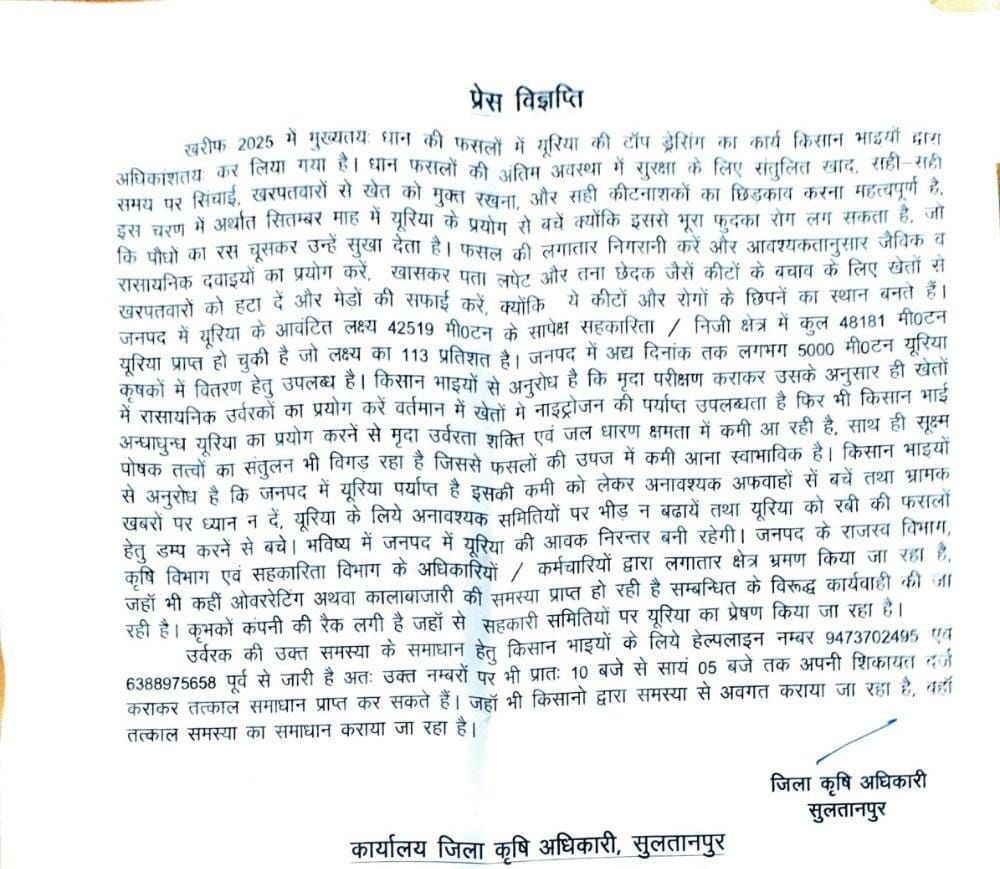 प्रेस विज्ञप्ति
खरीफ 2025 में मुख्यतयः धान की फसलों में यूरिया की टॉप ड्रेसिंग का कार्य किसान भाइयों द्वारा
अधिकांशतयः कर लिया गया है। धान फसलों की अंतिम अवस्था में सुरक्षा के लिए संतुलित खाद, सही-सही
समय पर सिंचाई, खरपतवारों से खेत को मुक्त रखना, और सही कीटनाशकों का छिड़काव करना महत्वपूर्ण है,
इस चरण में अर्थात सितम्बर माह में यूरिया के प्रयोग से बचें क्योंकि इससे भूरा फुदका रोग लग सकता है, जो
कि पौधों का रस चूसकर उन्हें सुखा देता है। फसल की लगातार निगरानी करें और आवश्यकतानुसार जैविक व
रासायनिक दवाइयों का प्रयोग करें, खासकर पता लपेट और तना छेदक जैसें कीटों के बचाव के लिए खेतों से
खरपतवारों को हटा दें और मेडों की सफाई करें, क्योंकि ये कीटों और रोगों के छिपनें का स्थान बनते हैं।
जनपद में यूरिया के आवंटित लक्ष्य 42519 मी0टन के सापेक्ष सहकारिता / निजी क्षेत्र में कुल 48181 मी0टन
यूरिया प्राप्त हो चुकी है जो लक्ष्य का 113 प्रतिशत है। जनपद में अद्य दिनांक तक लगभग 5000 मी0टन यूरिया
कृषकों में वितरण हेतु उपलब्ध है। किसान भाइयों से अनुरोध है कि मृदा परीक्षण कराकर उसके अनुसार ही खेतों
में रासायनिक उर्वरकों का प्रयोग करें वर्तमान में खेतों मे नाइट्रोजन की पर्याप्त उपलब्धता है फिर भी किसान भाई
अन्धाधुन्ध यूरिया का प्रयोग करनें से मृदा उर्वरता शक्ति एवं जल धारण क्षमता में कमी आ रही है, साथ ही सूक्ष्म
पोषक तत्वों का संतुलन भी विगड़ रहा है जिससे फसलों की उपज में कमी आना स्वाभाविक है। किसान भाइयों
से अनुरोध है कि जनपद में यूरिया पर्याप्त है इसकी कमी को लेकर अनावश्यक अफवाहों सें बचें तथा भ्रामक
खबरों पर ध्यान न दें, यूरिया के लिये अनावश्यक समितियों पर भीड़ न बढायें तथा यूरिया को रबी की फसलों
हेतु डम्प करनें से बचे। भविष्य में जनपद में यूरिया की आवक निरन्तर बनी रहेगी। जनपद के राजस्व विभाग,
कृषि विभाग एवं सहकारिता विभाग के अधिकारियों / कर्मचारियों द्वारा लगातार क्षेत्र भ्रमण किया जा रहा है,
जहाँ भी कहीं ओवररेटिंग अथवा कालाबाजारी की समस्या प्राप्त हो रही है सम्बन्धित के विरूद्ध कार्यवाही की जा
रही है। कृभकों कंपनी की रैक लगी है जहाँ से सहकारी समितियों पर यूरिया का प्रेषण किया जा रहा है।
उर्वरक की उक्त समस्या के समाधान हेतु किसान भाइयों के लिये हेल्पलाइन नम्बर 9473702495 एवं
6388975658 पूर्व से जारी है अतः उक्त नम्बरों पर भी प्रातः 10 बजे से सायं 05 बजे तक अपनी शिकायत दर्ज
कराकर तत्काल समाधान प्राप्त कर सकते हैं। जहाँ भी किसानो द्वारा समस्या से अवगत कराया जा रहा है, वहाँ
तत्काल समस्या का समाधान कराया जा रहा है।
जिला कृषि अधिकारी
सुलतानपुर
कार्यालय जिला कृषि अधिकारी, सुलतानपुर